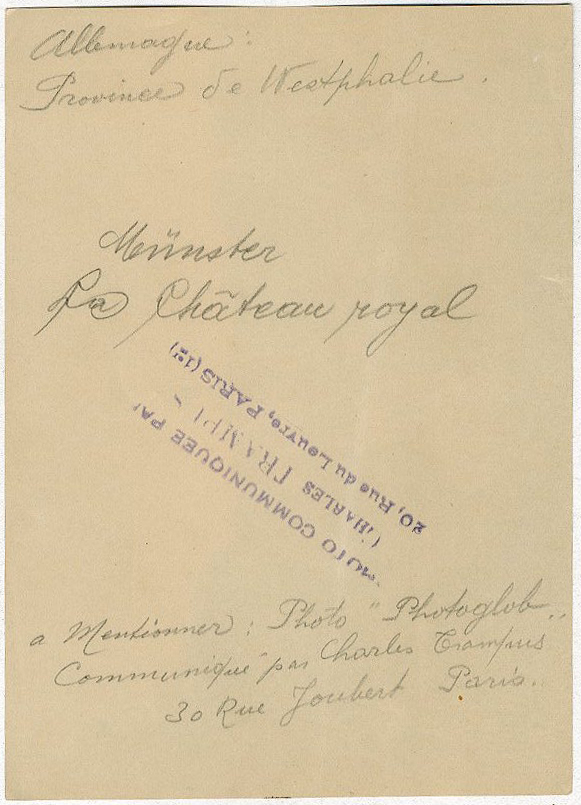 Allemagne :
Province de Westphalie .
Münster
La Château royal
PHOTO COMMUNIQUÉE PAR
CHARLES TRAMPUS
20, Rue du Louvre, PARIS (1er)
a Mentionner : Photo " Photoglob „
Communiqué par Charles Trampus
30 Rue Joubert Paris.